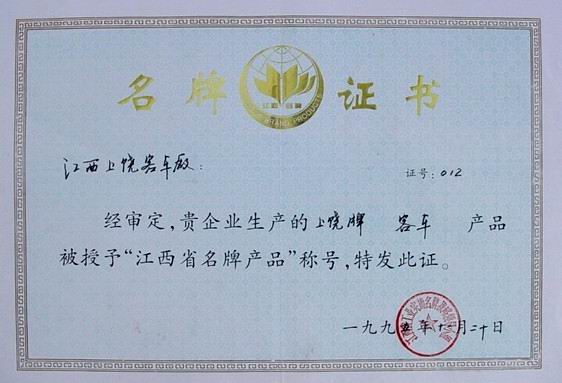 名牌证书
江西名牌
BRAND PRODUCTS
江西上饶客车厰:
证号:012
经审定,贵企业生产的上饶牌 客车 产品
被授予“江西省名牌产品”称号,特发此证。
一九九五年十一月二十日